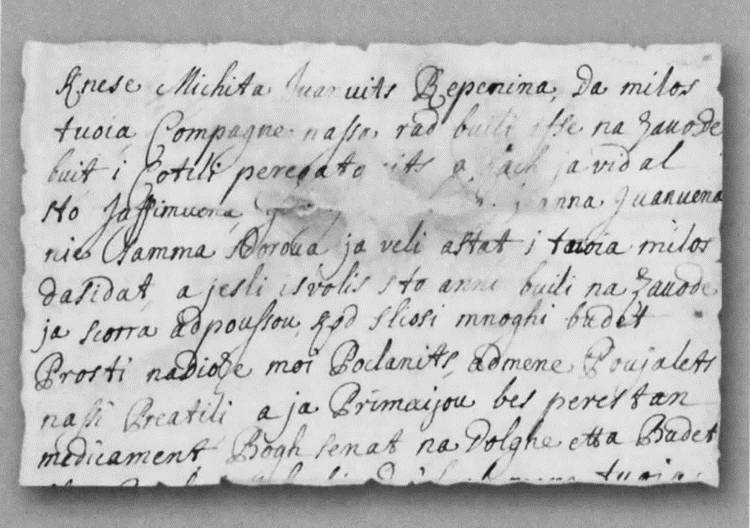 Knese Michita Juanvits Repenina, Da milos
tuoia Compagne nassa rad buili esse na Zauode
buit i Cotili peregato a ja vidal
sto Jaffimuena, anna Juanuena
nie samma sdorova ja veli astat i tuoia milos
dasidat, a jesli isvolis sto anni buili na Zauode
ja scorra adpoussou, God sliossi mnoghi budet
Prosti nadioze moi Poclanits, admene Poujalets
nassi Preatili a ja Primaijou bes perestan
medicament Bogh senat na Dolghe etta Budet